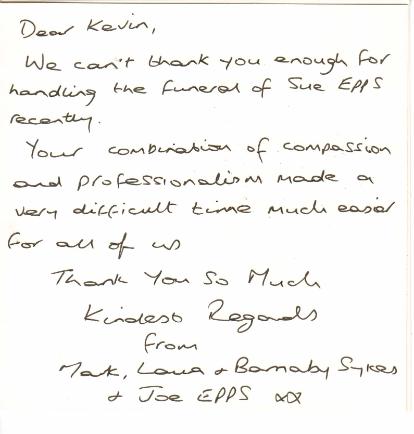 Dear Kevin,
We can't thank you enough for
handling the funeral of Sue EPPS
recently.
Your combination of compassion
and professionalism made a
very difficult time much easier
for all of us
Thank You So Much
Kindest Regards
from
Mark, Laura & Barnaby Sykes
& Joe EPPS xx